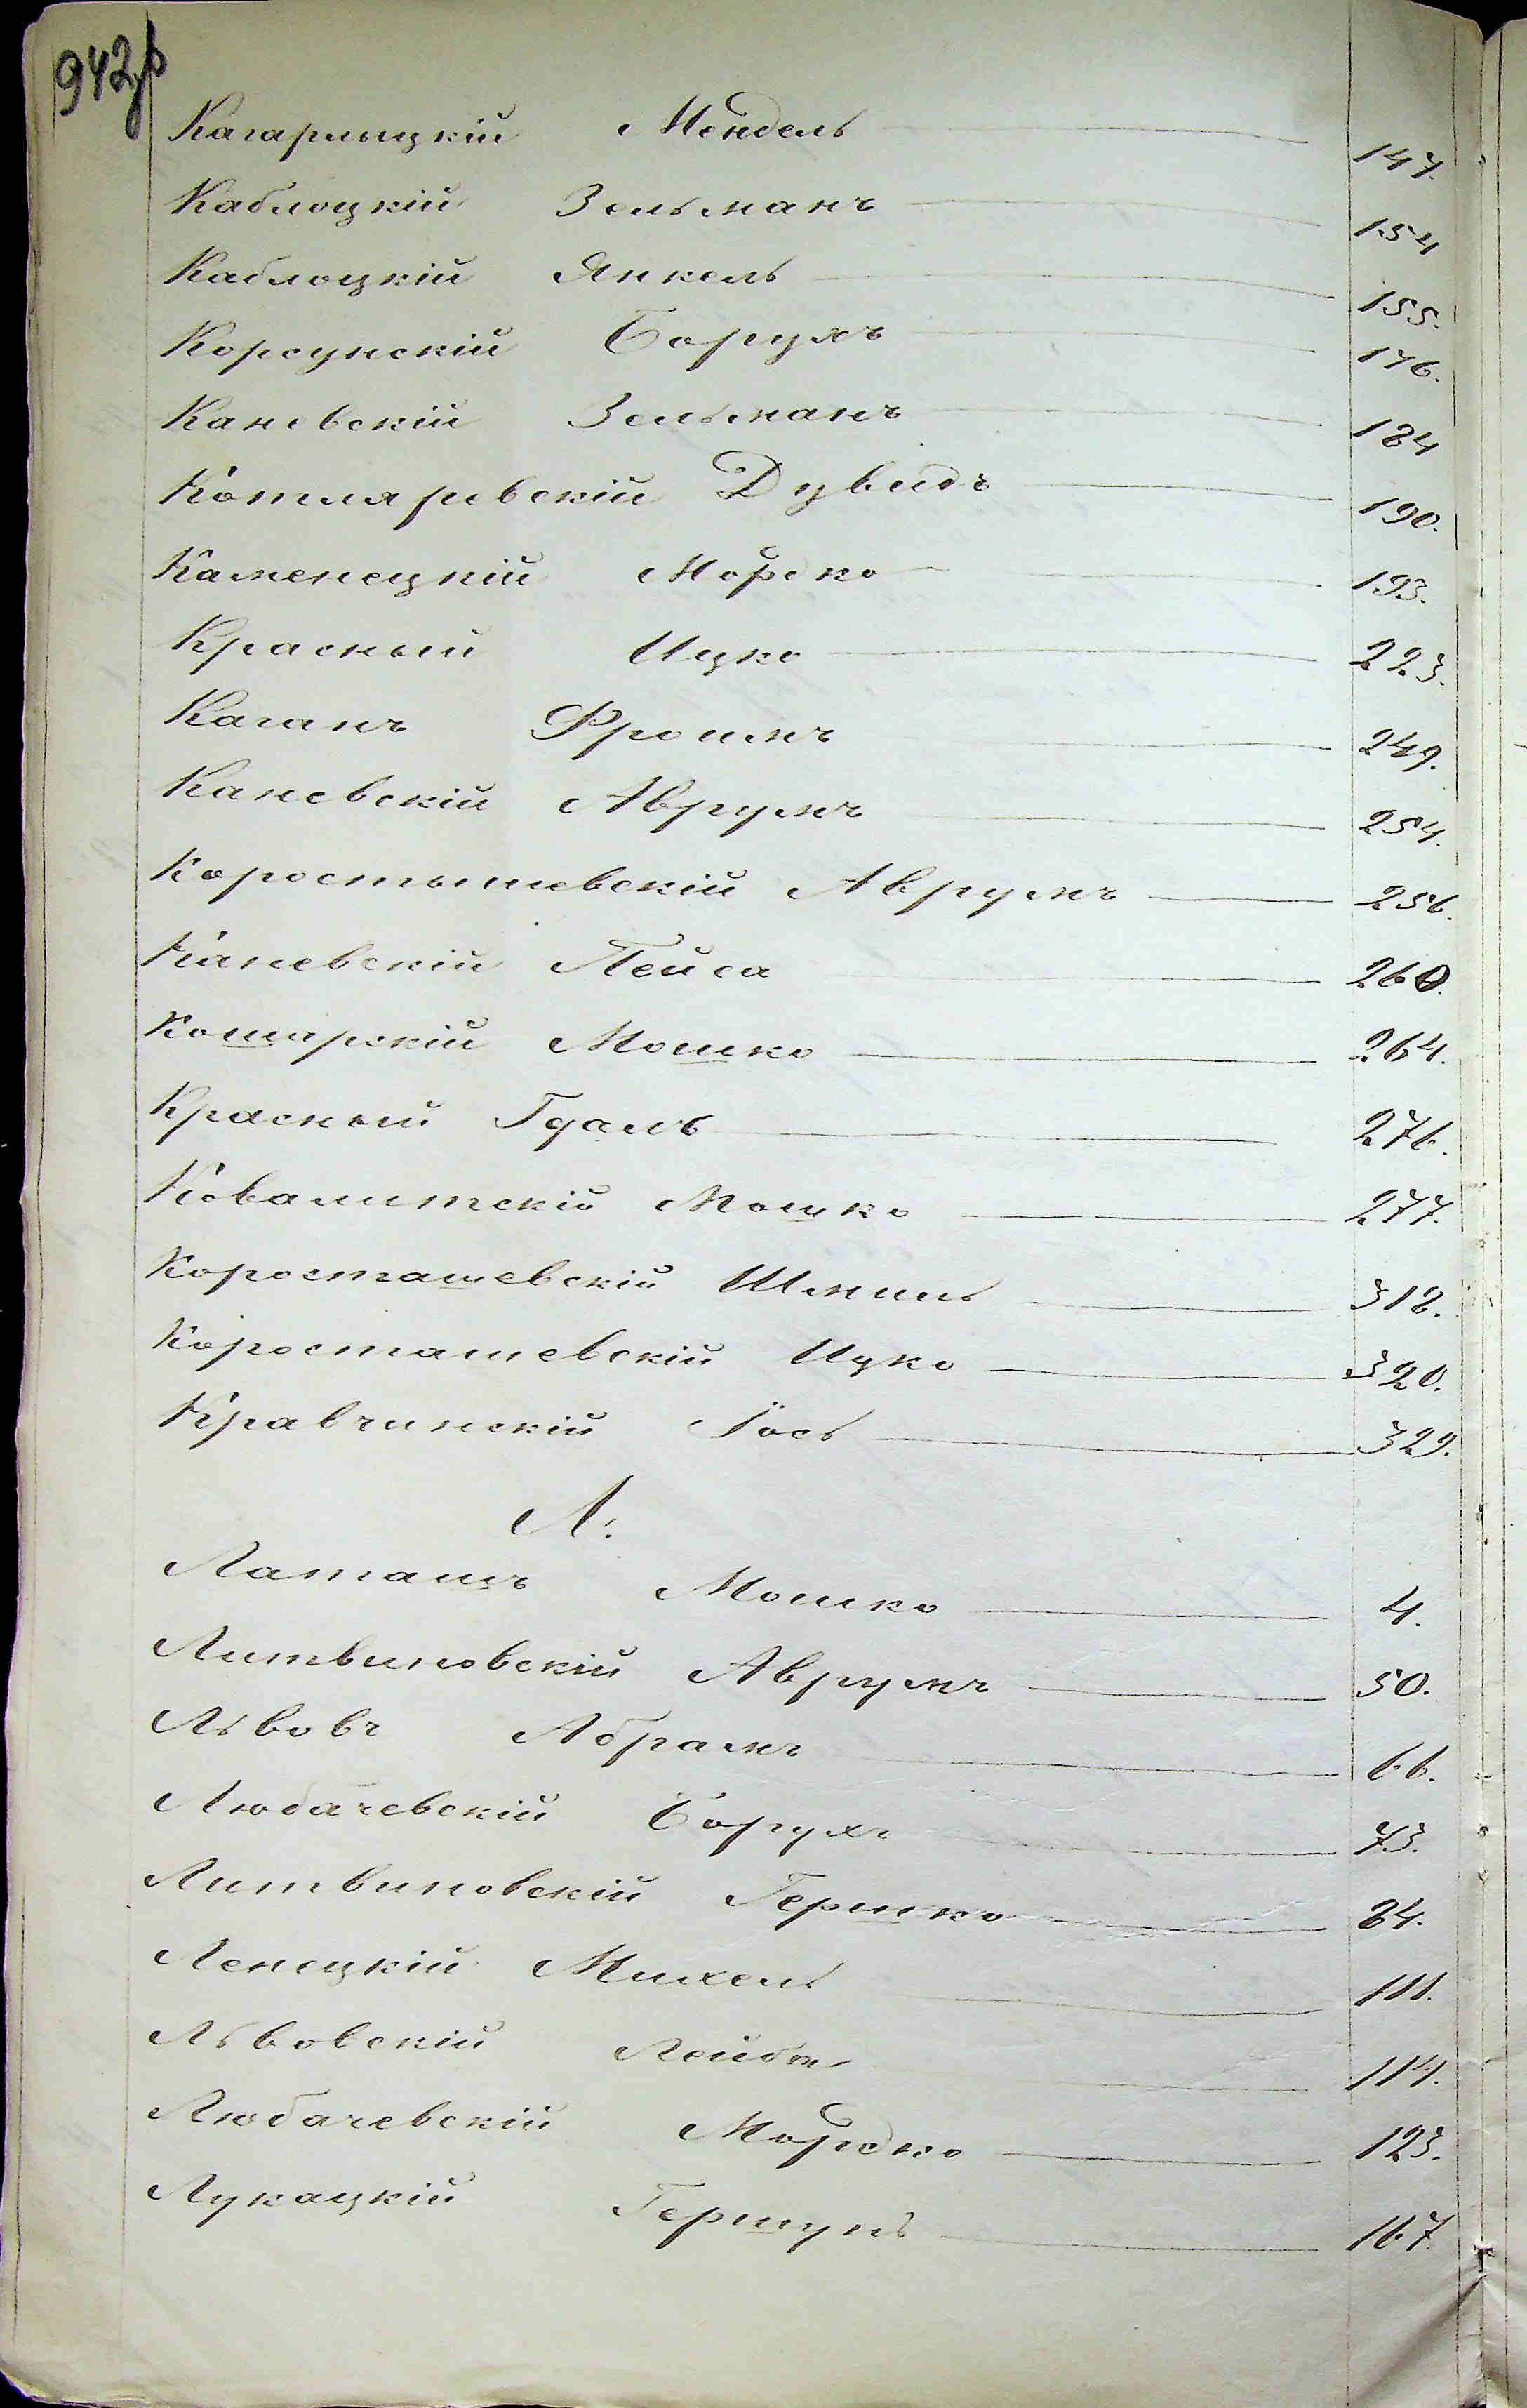 942
Кагарлыцкій Мендель 147.
Каблоцкій Зельманъ 154
Каблоцкій Янкель 155.
Корсунскій Борухъ 176.
Каневскій Зельманъ 184
Котляревскій Дувидъ 190.
Каменецкій Мордко 193.
Красный Ицко 223.
Каганъ Фроимъ 249.
Каневскій Аврумъ 254.
Коростышевскій Аврумъ 256.
Каневскій Пейса 260.
Кошарскій Мошко 264.
Красный Гдаль 276.
Ковалитскій Мошко 277.
Коросташевскій Шмиль 318.
Коросташевскій Ицко 320.
Кравчинскій Іось 329.
Л.
Латашъ Мошко 4.
Литвиновскій Аврумъ 50.
Львовъ Абрамъ 66.
Любачевскій Борухъ 73.
Литвиновскій Гершко 84.
Ленецкій Михель 111.
Львовскій Лейба 114.
Любачевскій Мордко 123.
Лукацкій Гершунъ 167.